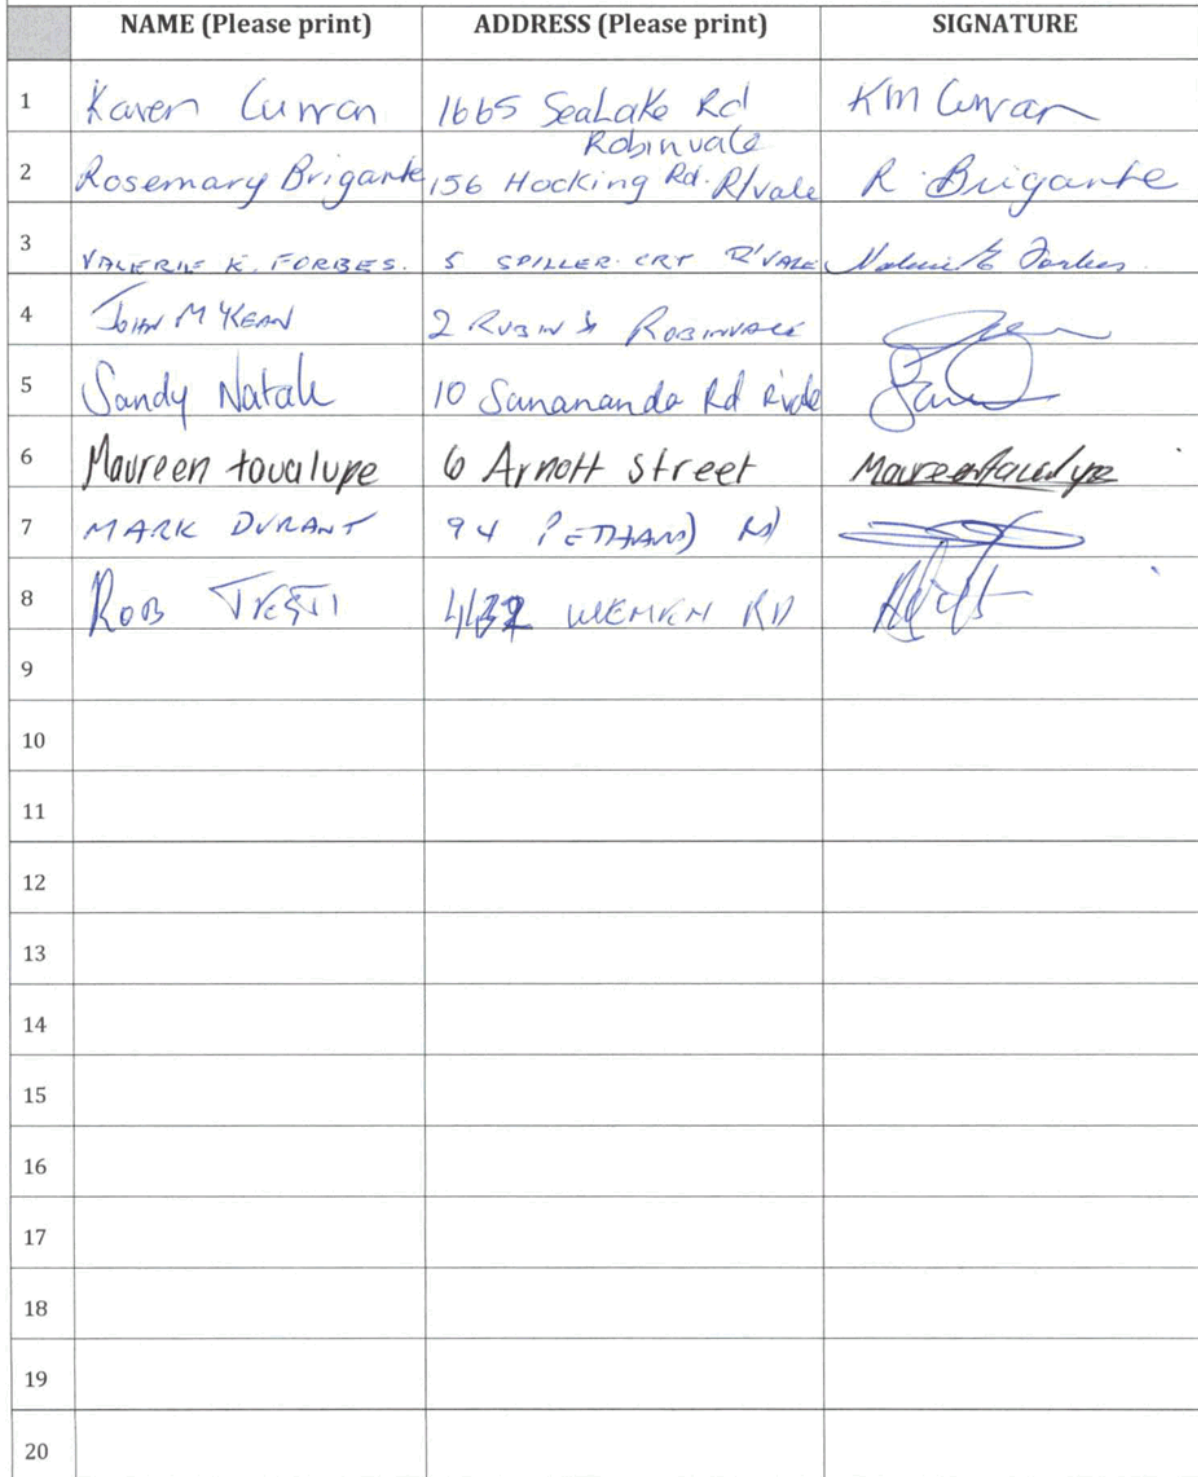 NAME (Please print) ADDRESS (Please print) SIGNATURE
1 Karen Curran 1665 SeaLake Rd KM Curran
Robinvale
2 Rosemary Brigante 156 Hocking Rd. R/vale R. Brigante
3 VALERIE K. FORBES. 5 SPILLER CRT R'VALE Valerie K Forbes
4 JOHN McKEAN 2 RUBIN St ROBINVALE
5 Sandy Natale 10 Sanananda Rd R'vale
6 Maureen toualupe 6 Arnott street
7 MARK DURANT 94 RD
8 ROB WEMEN RD
9
10
11
12
13
14
15
16
17
18
19
20